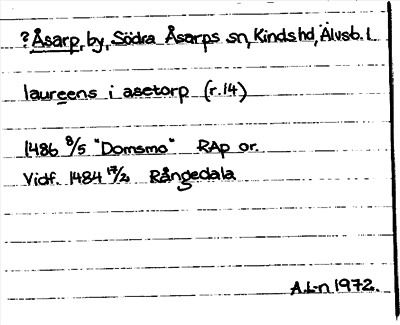 ? Åsarp, by, Södra Åsarps sn, Kinds hd, Älvsb. l.
laureens i asetorp (r. 14)
1486 8/5 "Domsmo" RAp or.
Vidf. 1484 17/2 Rångedala
A.L-n 1972.